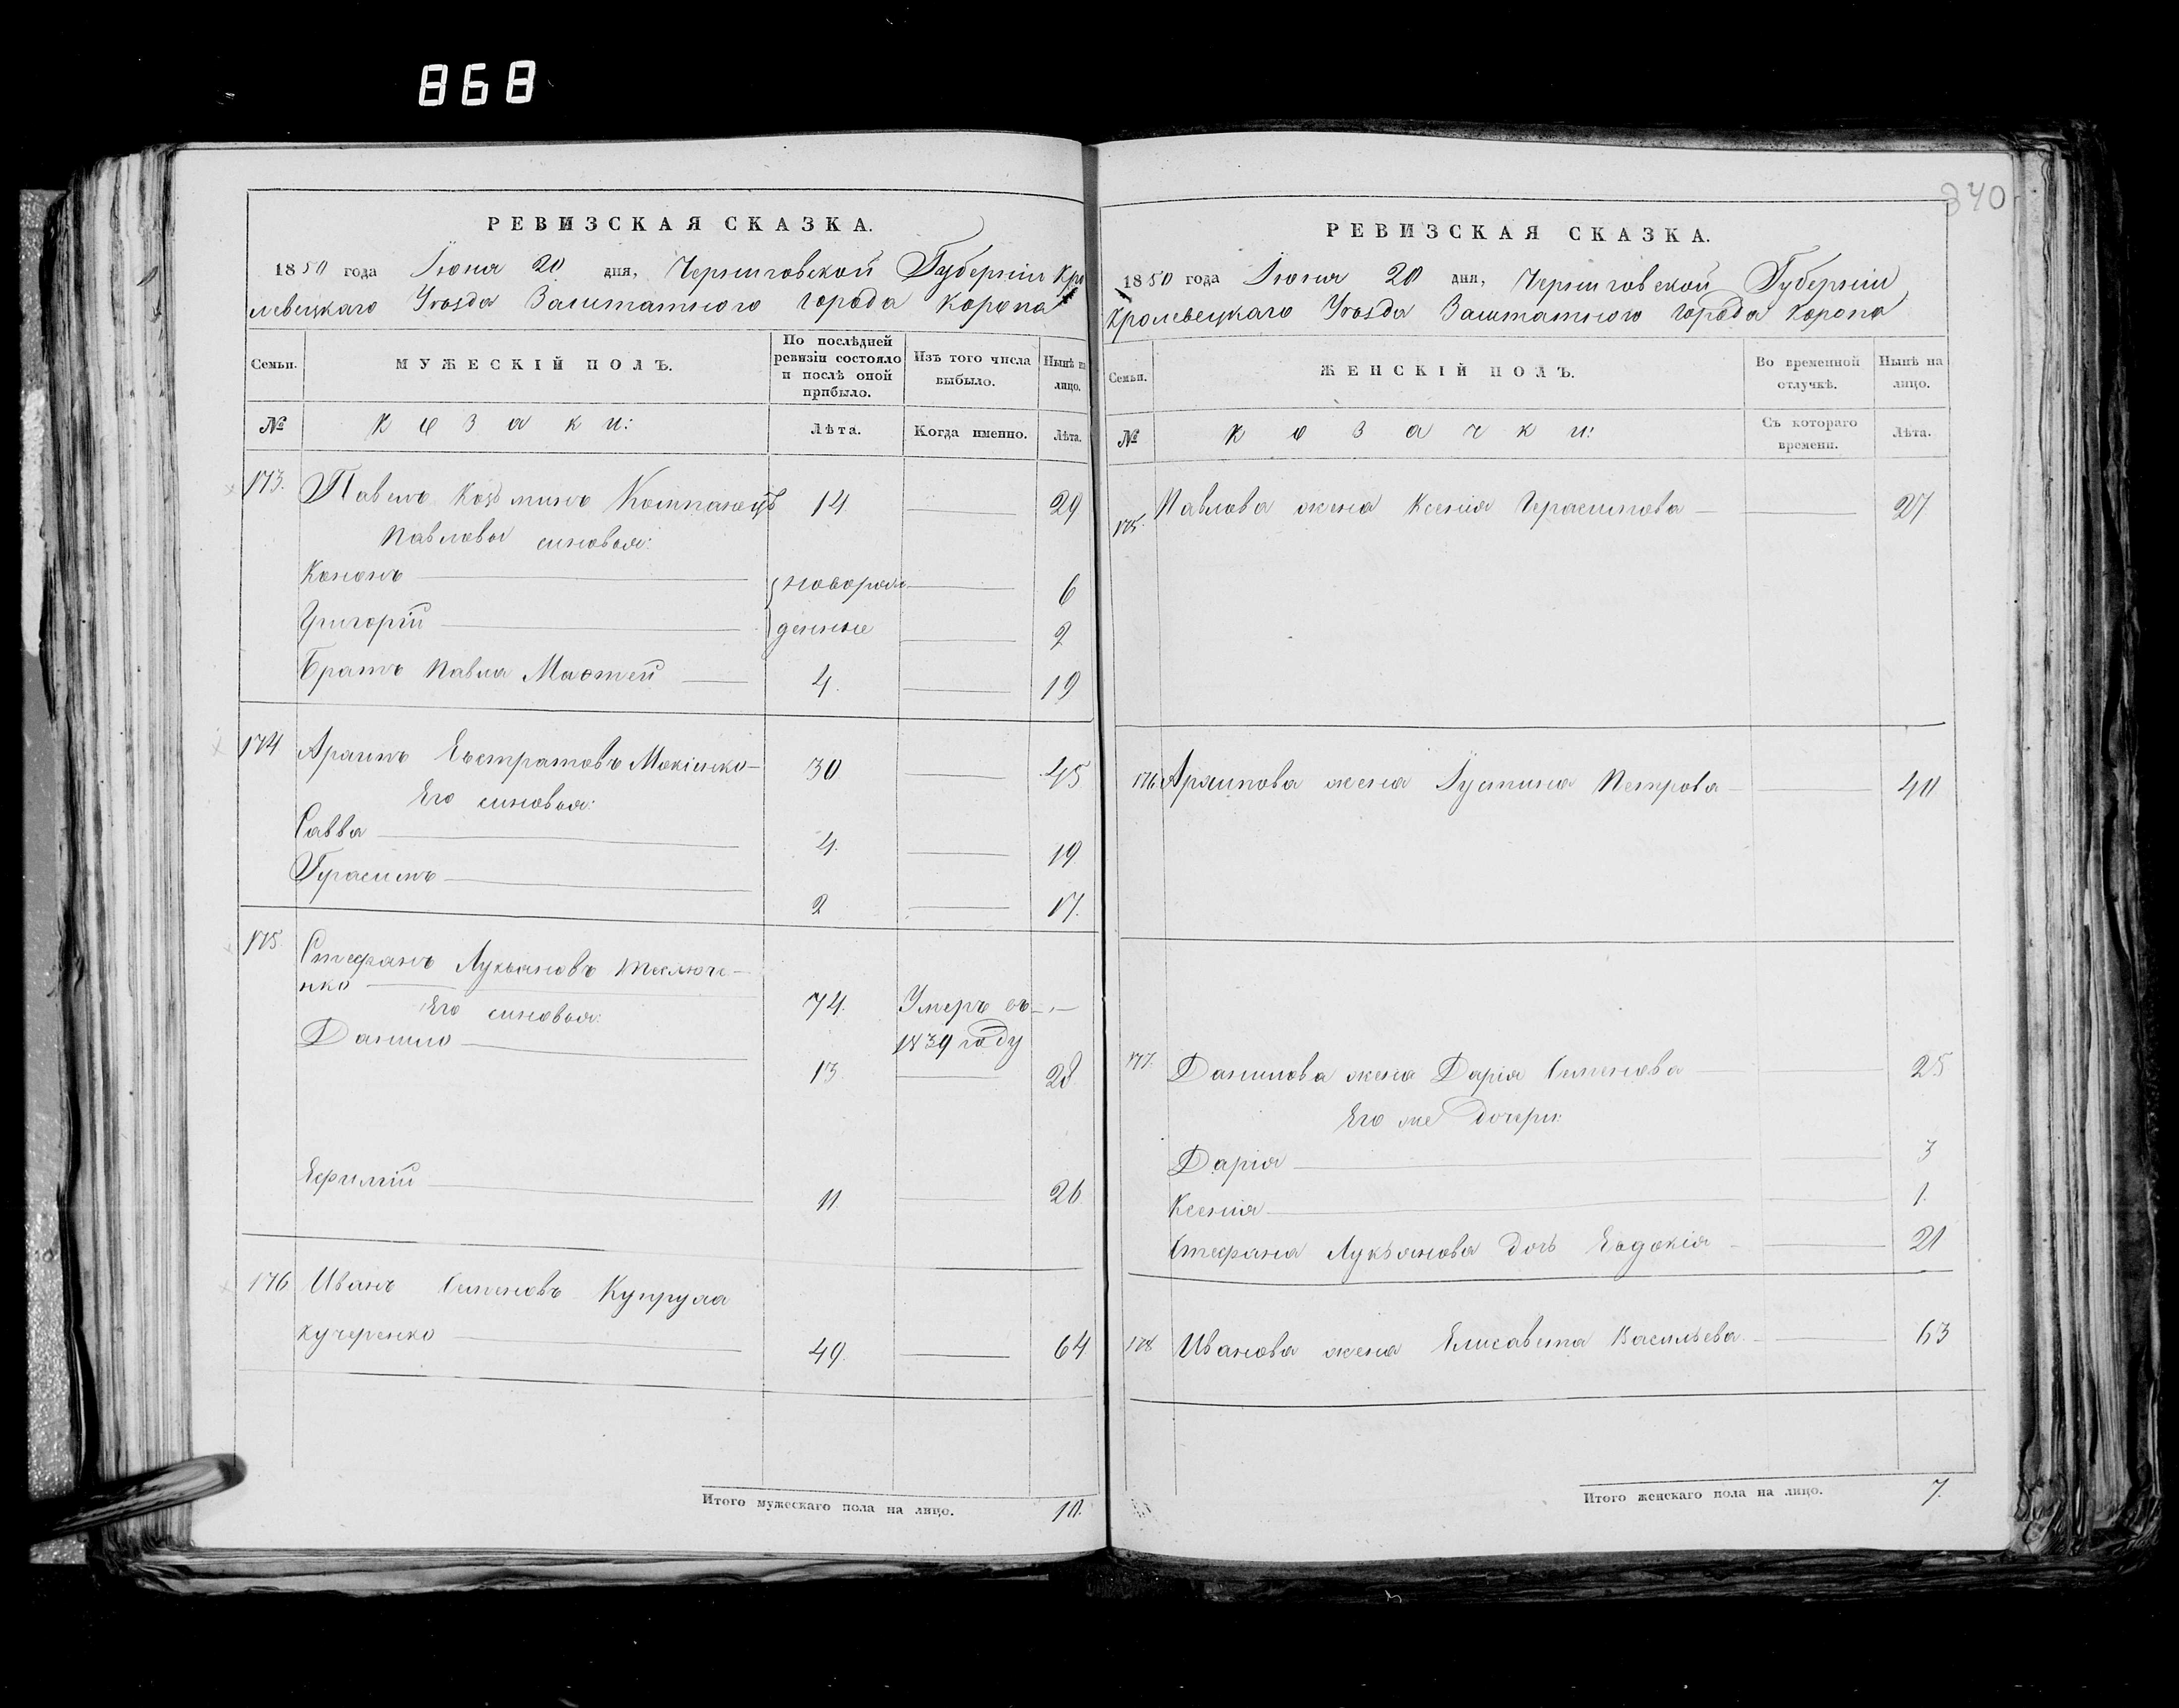 868
340
РЕВИЗСКАЯ СКАЗКА.
1850 года Іюня 20 дня, Черниговской Губерніи Кро
левецкаго Уѣзда Заштатного города Коропа
Семьи.
МУЖЕСКІЙ ПОЛЪ.
По послѣдней ревизіи состояло и послѣ оной прибыло.
Изъ того числа выбыло.
Нынѣ на лицо.
№
Козаки:
Лѣта.
Когда именно.
Лѣта.
173. Павелъ Козьминъ Компанецъ 14 — 29
Павловы сыновья:
Кононъ — } новорож — 6
Григорій — } денные — 2
Братъ Павла Матѳей — 4. — 19
174 Архипъ Евстратовъ Мокіенко — 30 — 45
Его сыновья:
Савва — 4. — 19
Герасимъ — 2 — 17.
175. Стефанъ Лукьяновъ
нко — 74. Умеръ въ —
Его сыновья: 1839 году
Данило — 13 — 28
Ефимій — 11. — 26
176 Иванъ Семеновъ
Кучеренко — 49. — 64
Итого мужескаго пола на лицо. 10.
РЕВИЗСКАЯ СКАЗКА.
1850 года Іюня 20 дня, Черниговской Губерніи
Кролевецкаго Уѣзда Заштатного города Коропа
Семьи.
ЖЕНСКІЙ ПОЛЪ.
Во временной отлучкѣ.
Нынѣ на лицо.
№
Козачки:
Съ котораго времени.
Лѣта.
175. Павлова жена Ксенія Герасимова — — 27
176 Архипова жена Іустина Петрова — — 40
177. Данилова жена Дарія Семенова — 25
Его же дочери:
Дарія — — 3
Ксенія — — 1.
Стефана Лукьянова дочь Евдокія — — 21
178 Иванова жена Елисавета Васильева — — 63
Итого женскаго пола на лицо. 7.